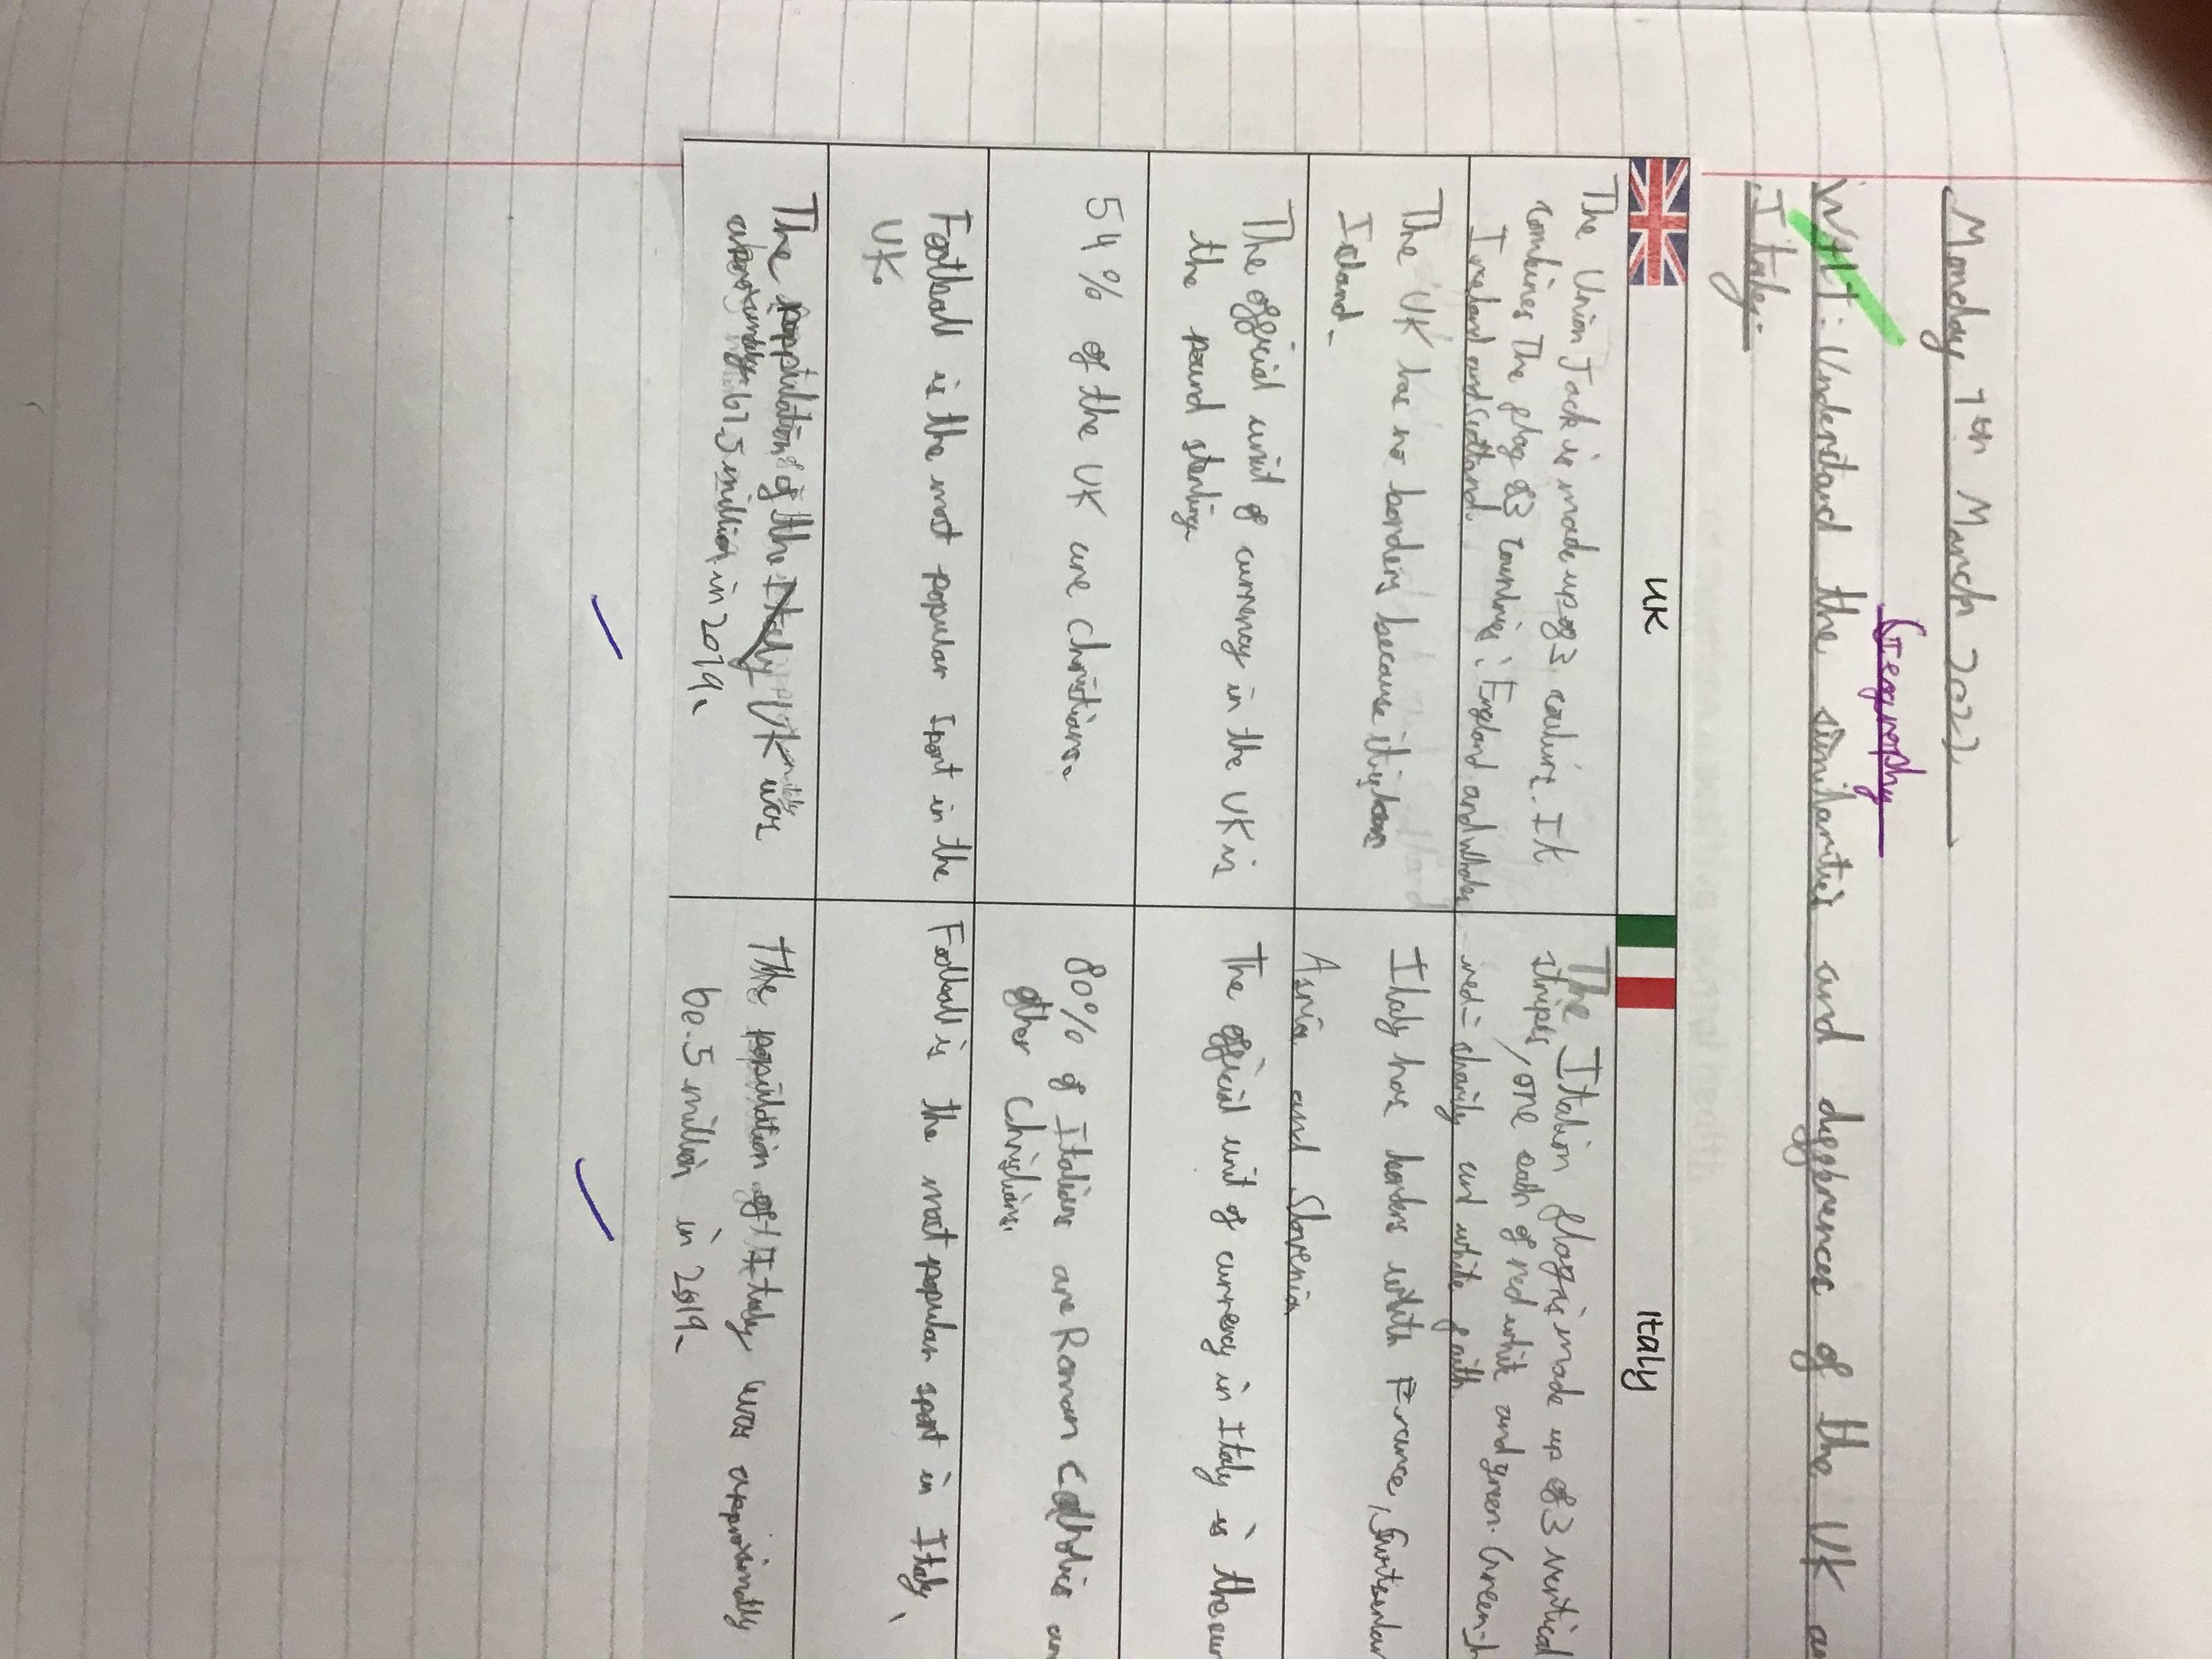 Monday 7th March 2022
Geography
WALT: Understand the similarities and diferences of the UK
Italy.
UK
Italy
The Union Jack is made up of 3 colours. It
combines The flag of 3 countries: England and Whales
Ireland and Scotland.
The Italian flag is made up of 3 vertical
stripes, one each of red white and green. Green-
red = charity and white faith
The UK has no borders because it is an
Island.
Italy have borders with France,
and Slovenia
The official unit of currency in the UK is
the pound sterling
The official unit of currency in Italy is the
54% of the UK are Christians.
80% of Italians are Roman Catholics
other Christians.
Football is the most popular Sport in the
UK.
Football is the most popular sport in Italy.
The population of the UK was
67.5 million in 2019.
The population of Italy was approximatly
60.5 million in 2019.